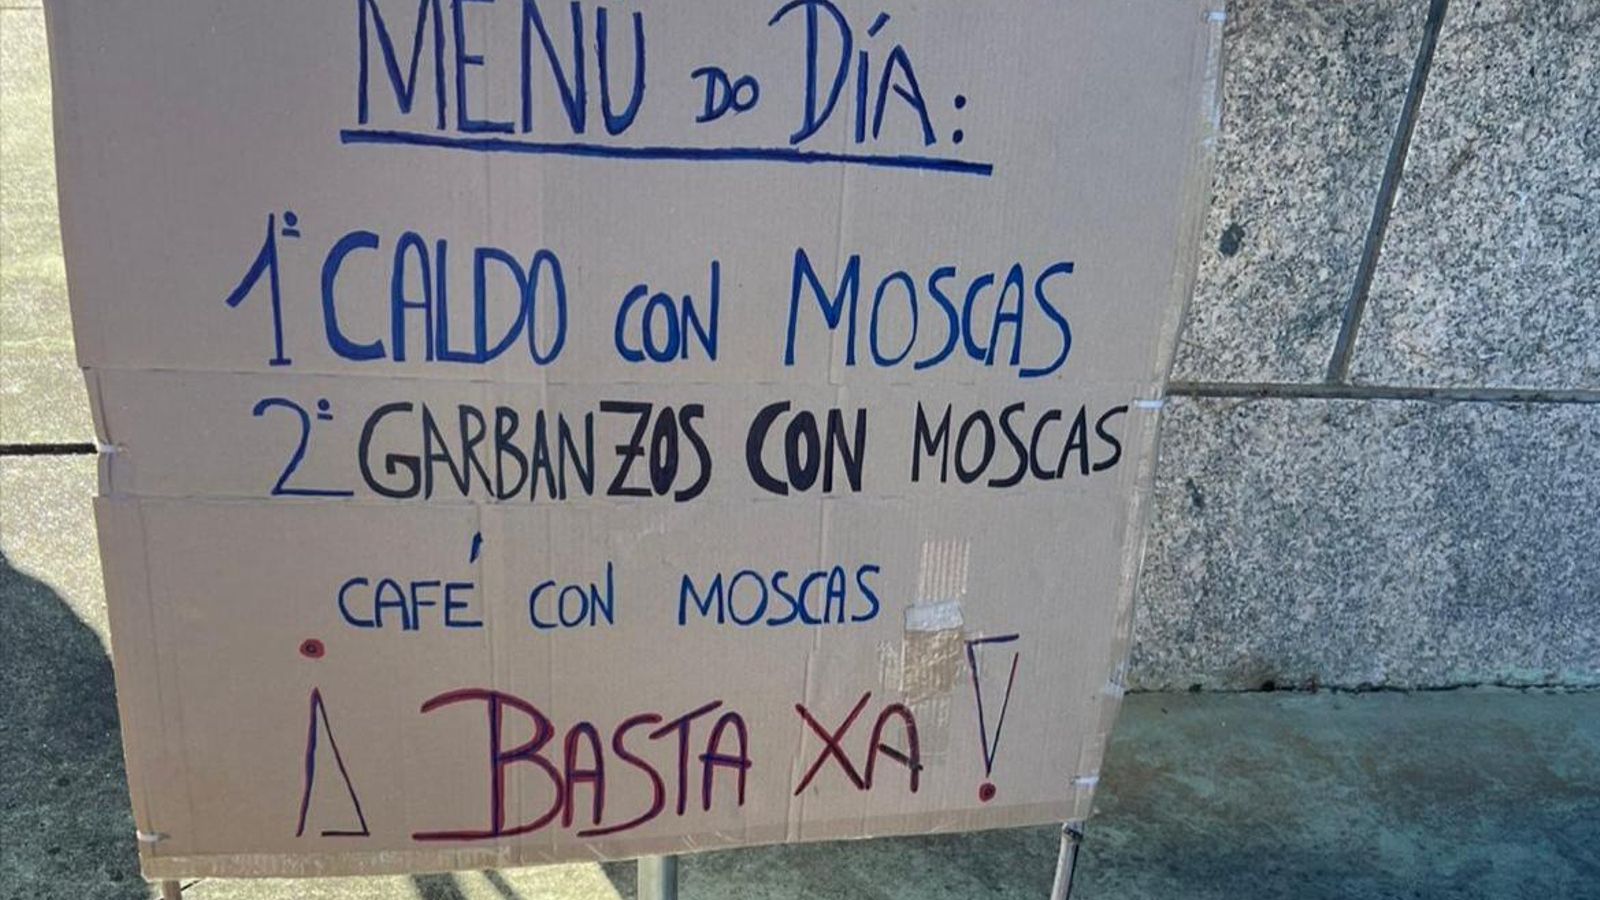 MENÚ DO DÍA:
1º CALDO CON MOSCAS
2º GARBANZOS CON MOSCAS
CAFÉ CON MOSCAS
¡BASTA XA!